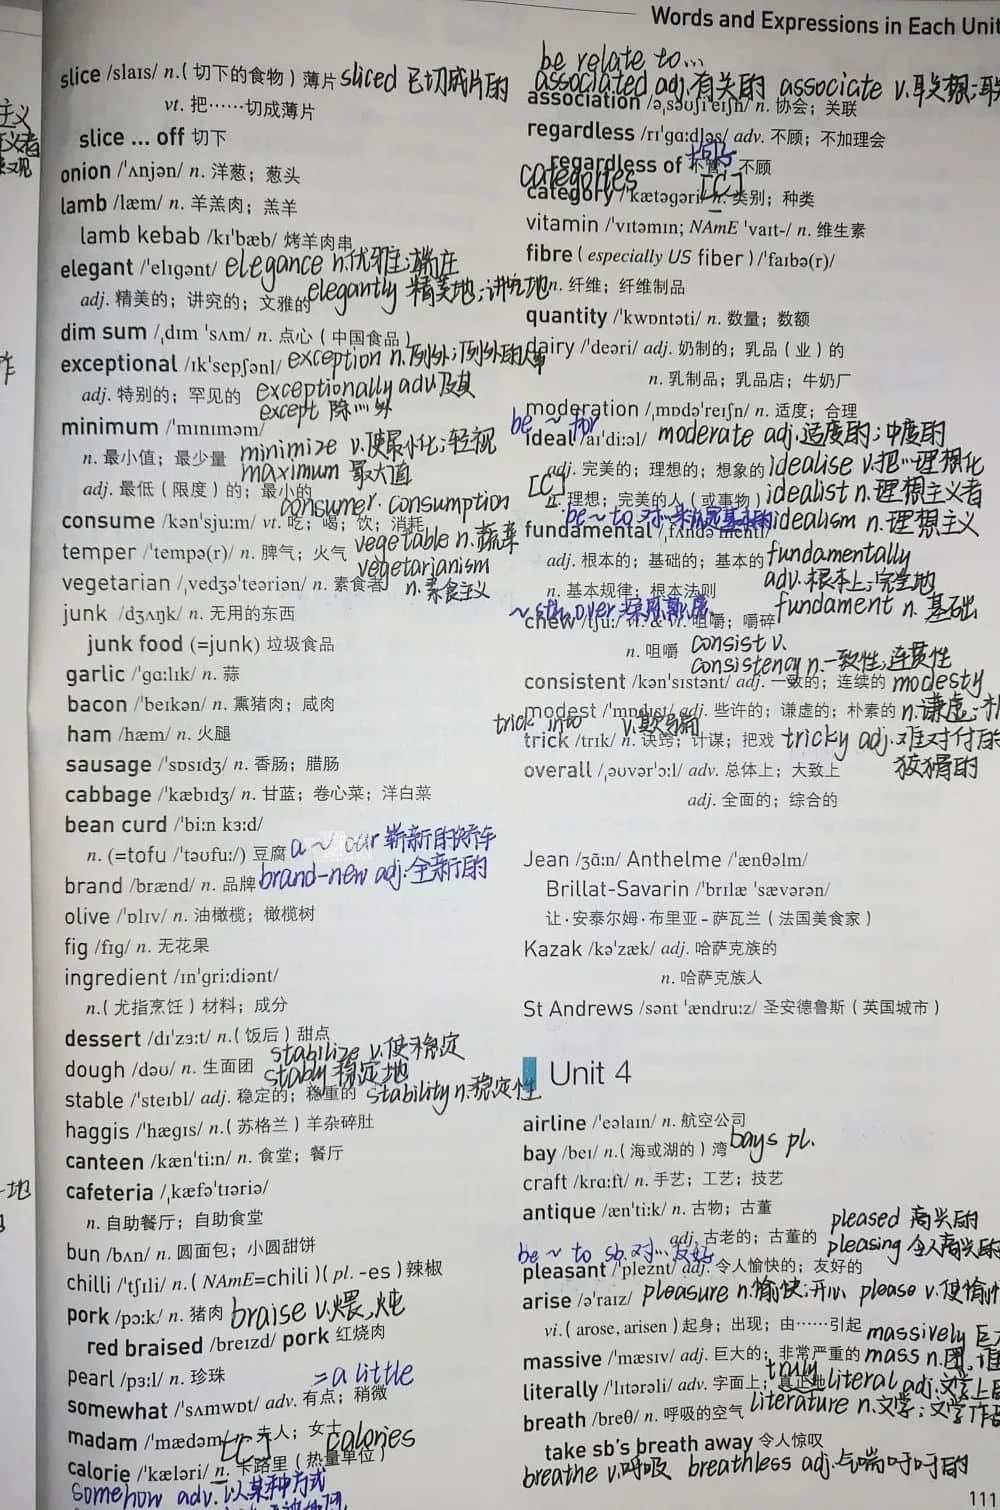 Words and Expressions in Each Unit
slice /slaɪs/ n.(切下的食物) 薄片 sliced 已切成片的
vt. 把……切成薄片
slice ... off 切下
onion /ˈʌnjən/ n. 洋葱；葱头
lamb /læm/ n. 羊羔肉；羔羊
lamb kebab /kɪˈbæb/ 烤羊肉串
elegant /ˈelɪɡənt/ elegance n.优雅；端庄
adj. 精美的；讲究的；文雅的 elegantly 精美地；讲究地
dim sum /ˌdɪm ˈsʌm/ n. 点心（中国食品）
exceptional /ɪkˈsepʃənl/ exception n.例外；例外的人事
adj. 特别的；罕见的 exceptionally adv.及其
except 除…外
minimum /ˈmɪnɪməm/
n. 最小值；最少量 minimize v.使最小化；轻视
maximum 最大值
adj. 最低（限度）的；最小的
consumer. consumption
consume /kənˈsjuːm/ vt. 吃；喝；饮；消耗
temper /ˈtempə(r)/ n. 脾气；火气 vegetable n.蔬菜
vegetarianism
vegetarian /ˌvedʒəˈteəriən/ n. 素食者 n.素食主义
junk /dʒʌŋk/ n. 无用的东西
junk food (=junk) 垃圾食品
garlic /ˈɡɑːlɪk/ n. 蒜
bacon /ˈbeɪkən/ n. 熏猪肉；咸肉
ham /hæm/ n. 火腿
sausage /ˈsɒsɪdʒ/ n. 香肠；腊肠
cabbage /ˈkæbɪdʒ/ n. 甘蓝；卷心菜；洋白菜
bean curd /ˈbiːn kɜːd/
n. (=tofu /ˈtəʊfuː/) 豆腐 a ~ car 崭新的轿车
brand /brænd/ n. 品牌 brand-new adj.全新的
olive /ˈɒlɪv/ n. 油橄榄；橄榄树
fig /fɪɡ/ n. 无花果
ingredient /ɪnˈɡriːdiənt/
n.(尤指烹饪) 材料；成分
dessert /dɪˈzɜːt/ n.(饭后) 甜点
stabilize v.使稳定
dough /dəʊ/ n. 生面团 stably 稳定地
stable /ˈsteɪbl/ adj. 稳定的；稳重的 stability n.稳定性
haggis /ˈhæɡɪs/ n.(苏格兰) 羊杂碎肚
canteen /kænˈtiːn/ n. 食堂；餐厅
cafeteria /ˌkæfəˈtɪəriə/
n. 自助餐厅；自助食堂
bun /bʌn/ n. 圆面包；小圆甜饼
chilli /ˈtʃɪli/ n. (NAmE=chili)(pl. -es)辣椒
pork /pɔːk/ n. 猪肉 braise v.煨，炖
red braised /breɪzd/ pork 红烧肉
pearl /pɜːl/ n. 珍珠 =a little
somewhat /ˈsʌmwɒt/ adv. 有点；稍微
madam /ˈmædəm/ n. 夫人；女士
[C] calories
calorie /ˈkæləri/ n. 卡路里（热量单位）
somehow adv.以某种方式
be relate to...
associated adj.有关的 associate v.联想；联
association /əˌsəʊʃiˈeɪʃn/ n. 协会；关联
regardless /rɪˈɡɑːdləs/ adv. 不顾；不加理会
regardless of 不管；不顾
categories [C]
category /ˈkætəɡəri/ n. 类别；种类
vitamin /ˈvɪtəmɪn; NAmE ˈvaɪt-/ n. 维生素
fibre ( especially US fiber ) /ˈfaɪbə(r)/
n. 纤维；纤维制品
quantity /ˈkwɒntəti/ n. 数量；数额
dairy /ˈdeəri/ adj. 奶制的；乳品（业）的
n. 乳制品；乳品店；牛奶厂
moderation /ˌmɒdəˈreɪʃn/ n. 适度；合理
be ~ for
ideal /aɪˈdiːəl/ moderate adj.适度的；中度的
adj. 完美的；理想的；想象的 idealise v.把…理想化
[C] n. 理想；完美的人（或事物） idealist n.理想主义者
be ~ to 对…来说是基本的 idealism n.理想主义
fundamental /ˌfʌndəˈmentl/
adj. 根本的；基础的；基本的 fundamentally
n. 基本规律；根本法则 adv.根本上；完全地
~ sth over fundament n. 基础
chew /tʃuː/ vt. & vi. 咀嚼；嚼碎
n. 咀嚼 consist v.
consistency n.一致性，连贯性
consistent /kənˈsɪstənt/ adj. 一致的；连续的 modesty
modest /ˈmɒdɪst/ adj. 些许的；谦虚的；朴素的 n.谦虚；朴
trick into v.欺骗
trick /trɪk/ n. 诀窍；计谋；把戏 tricky adj.难对付的
狡猾的
overall /ˌəʊvərˈɔːl/ adv. 总体上；大致上
adj. 全面的；综合的
Jean /ʒɑ̃ːn/ Anthelme /ˈænθəlm/
Brillat-Savarin /ˈbrɪlæ ˈsævərən/
让·安泰尔姆·布里亚-萨瓦兰（法国美食家）
Kazak /kəˈzæk/ adj. 哈萨克族的
n. 哈萨克族人
St Andrews /sənt ˈændruːz/ 圣安德鲁斯（英国城市）
Unit 4
airline /ˈeəlaɪn/ n. 航空公司
bay /beɪ/ n.(海或湖的) 湾 bays pl.
craft /krɑːft/ n. 手艺；工艺；技艺
antique /ænˈtiːk/ n. 古物；古董
adj. 古老的；古董的 pleased 高兴的
be ~ to sb.对…友好 pleasing 令人高兴的
pleasant /ˈpleznt/ adj. 令人愉快的；友好的
arise /əˈraɪz/ pleasure n.愉快；开心 please v.使愉
vi.(arose, arisen) 起身；出现；由……引起 massively 巨
massive /ˈmæsɪv/ adj. 巨大的；非常严重的 mass n.团，堆
truly
literally /ˈlɪtərəli/ adv. 字面上；真正地 literal adj.文学上的
breath /breθ/ n. 呼吸的空气 literature n.文学；文学作品
take sb's breath away 令人惊叹
breathe v.呼吸 breathless adj.气喘吁吁的
111